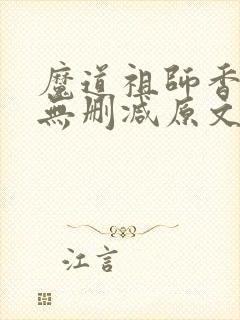 魔道祖師香
無刪减原文
江言